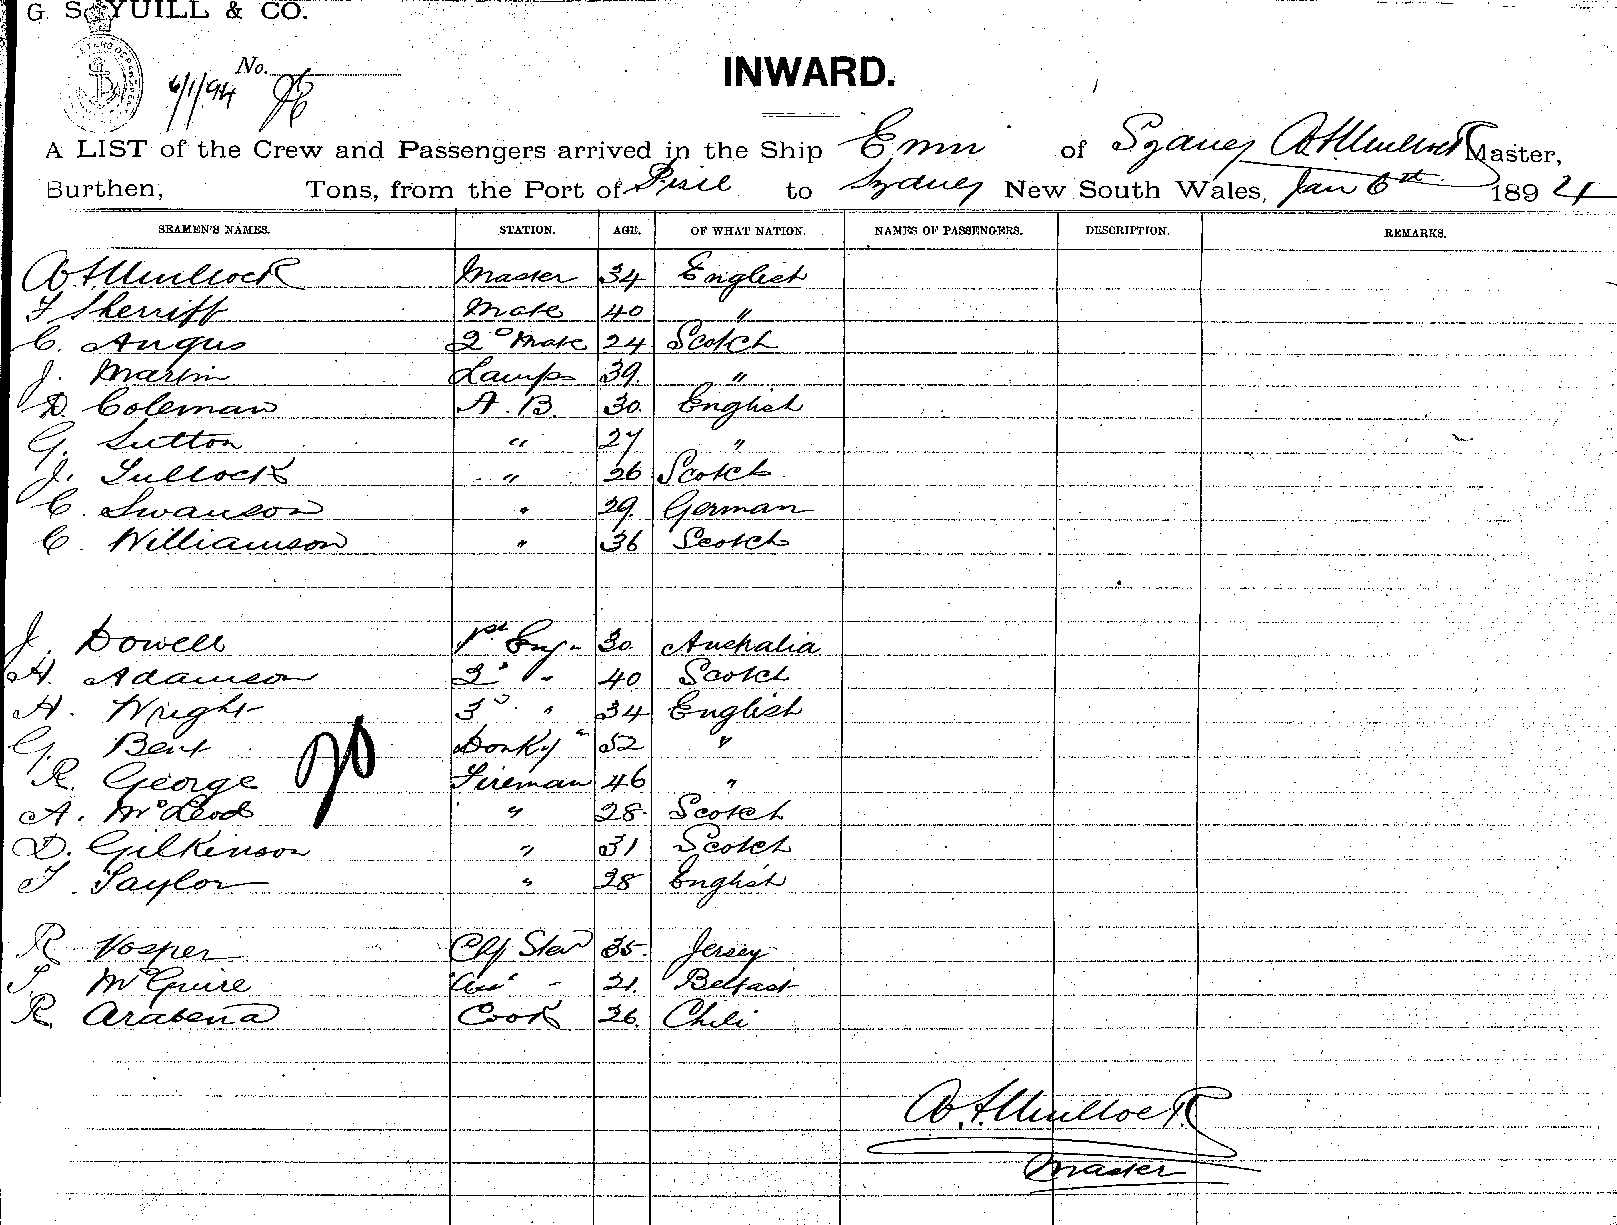 G. S. YUILL & CO.
6/1/94 No.
INWARD.
A LIST of the Crew and Passengers arrived in the Ship Emu of Sydney Master,
Burthen, Tons, from the Port of to Sydney New South Wales, Jan 6th 1894
SEAMEN'S NAMES. STATION. AGE. OF WHAT NATION. NAMES OF PASSENGERS. DESCRIPTION. REMARKS.
Mullock Master 34 English
Sherriff Mate 40 "
C. Angus 2° Mate 24 Scotch
J. Martin Lamps 39. "
D. Coleman A.B. 30. English
G. Sutton " 27 "
J. Tullock " 26 Scotch
C. Swanson " 29. German
C. Williamson " 36 Scotch
J. Dowell 1st Eng. 30. Australia
A. Adamson 2° " 40 Scotch
A. Wright 3° " 34 English
G. Bent Donky " 52 "
R. George Fireman 46 "
A. McLeod " 28. Scotch
D. Gilkinson " 31 Scotch
T. Taylor " 28 English
R. Vosper Chf Stew 35. Jersey
McGuire Ass' " 21. Belfast
R. Arabena Cook 26. Chili
Mullock
Master